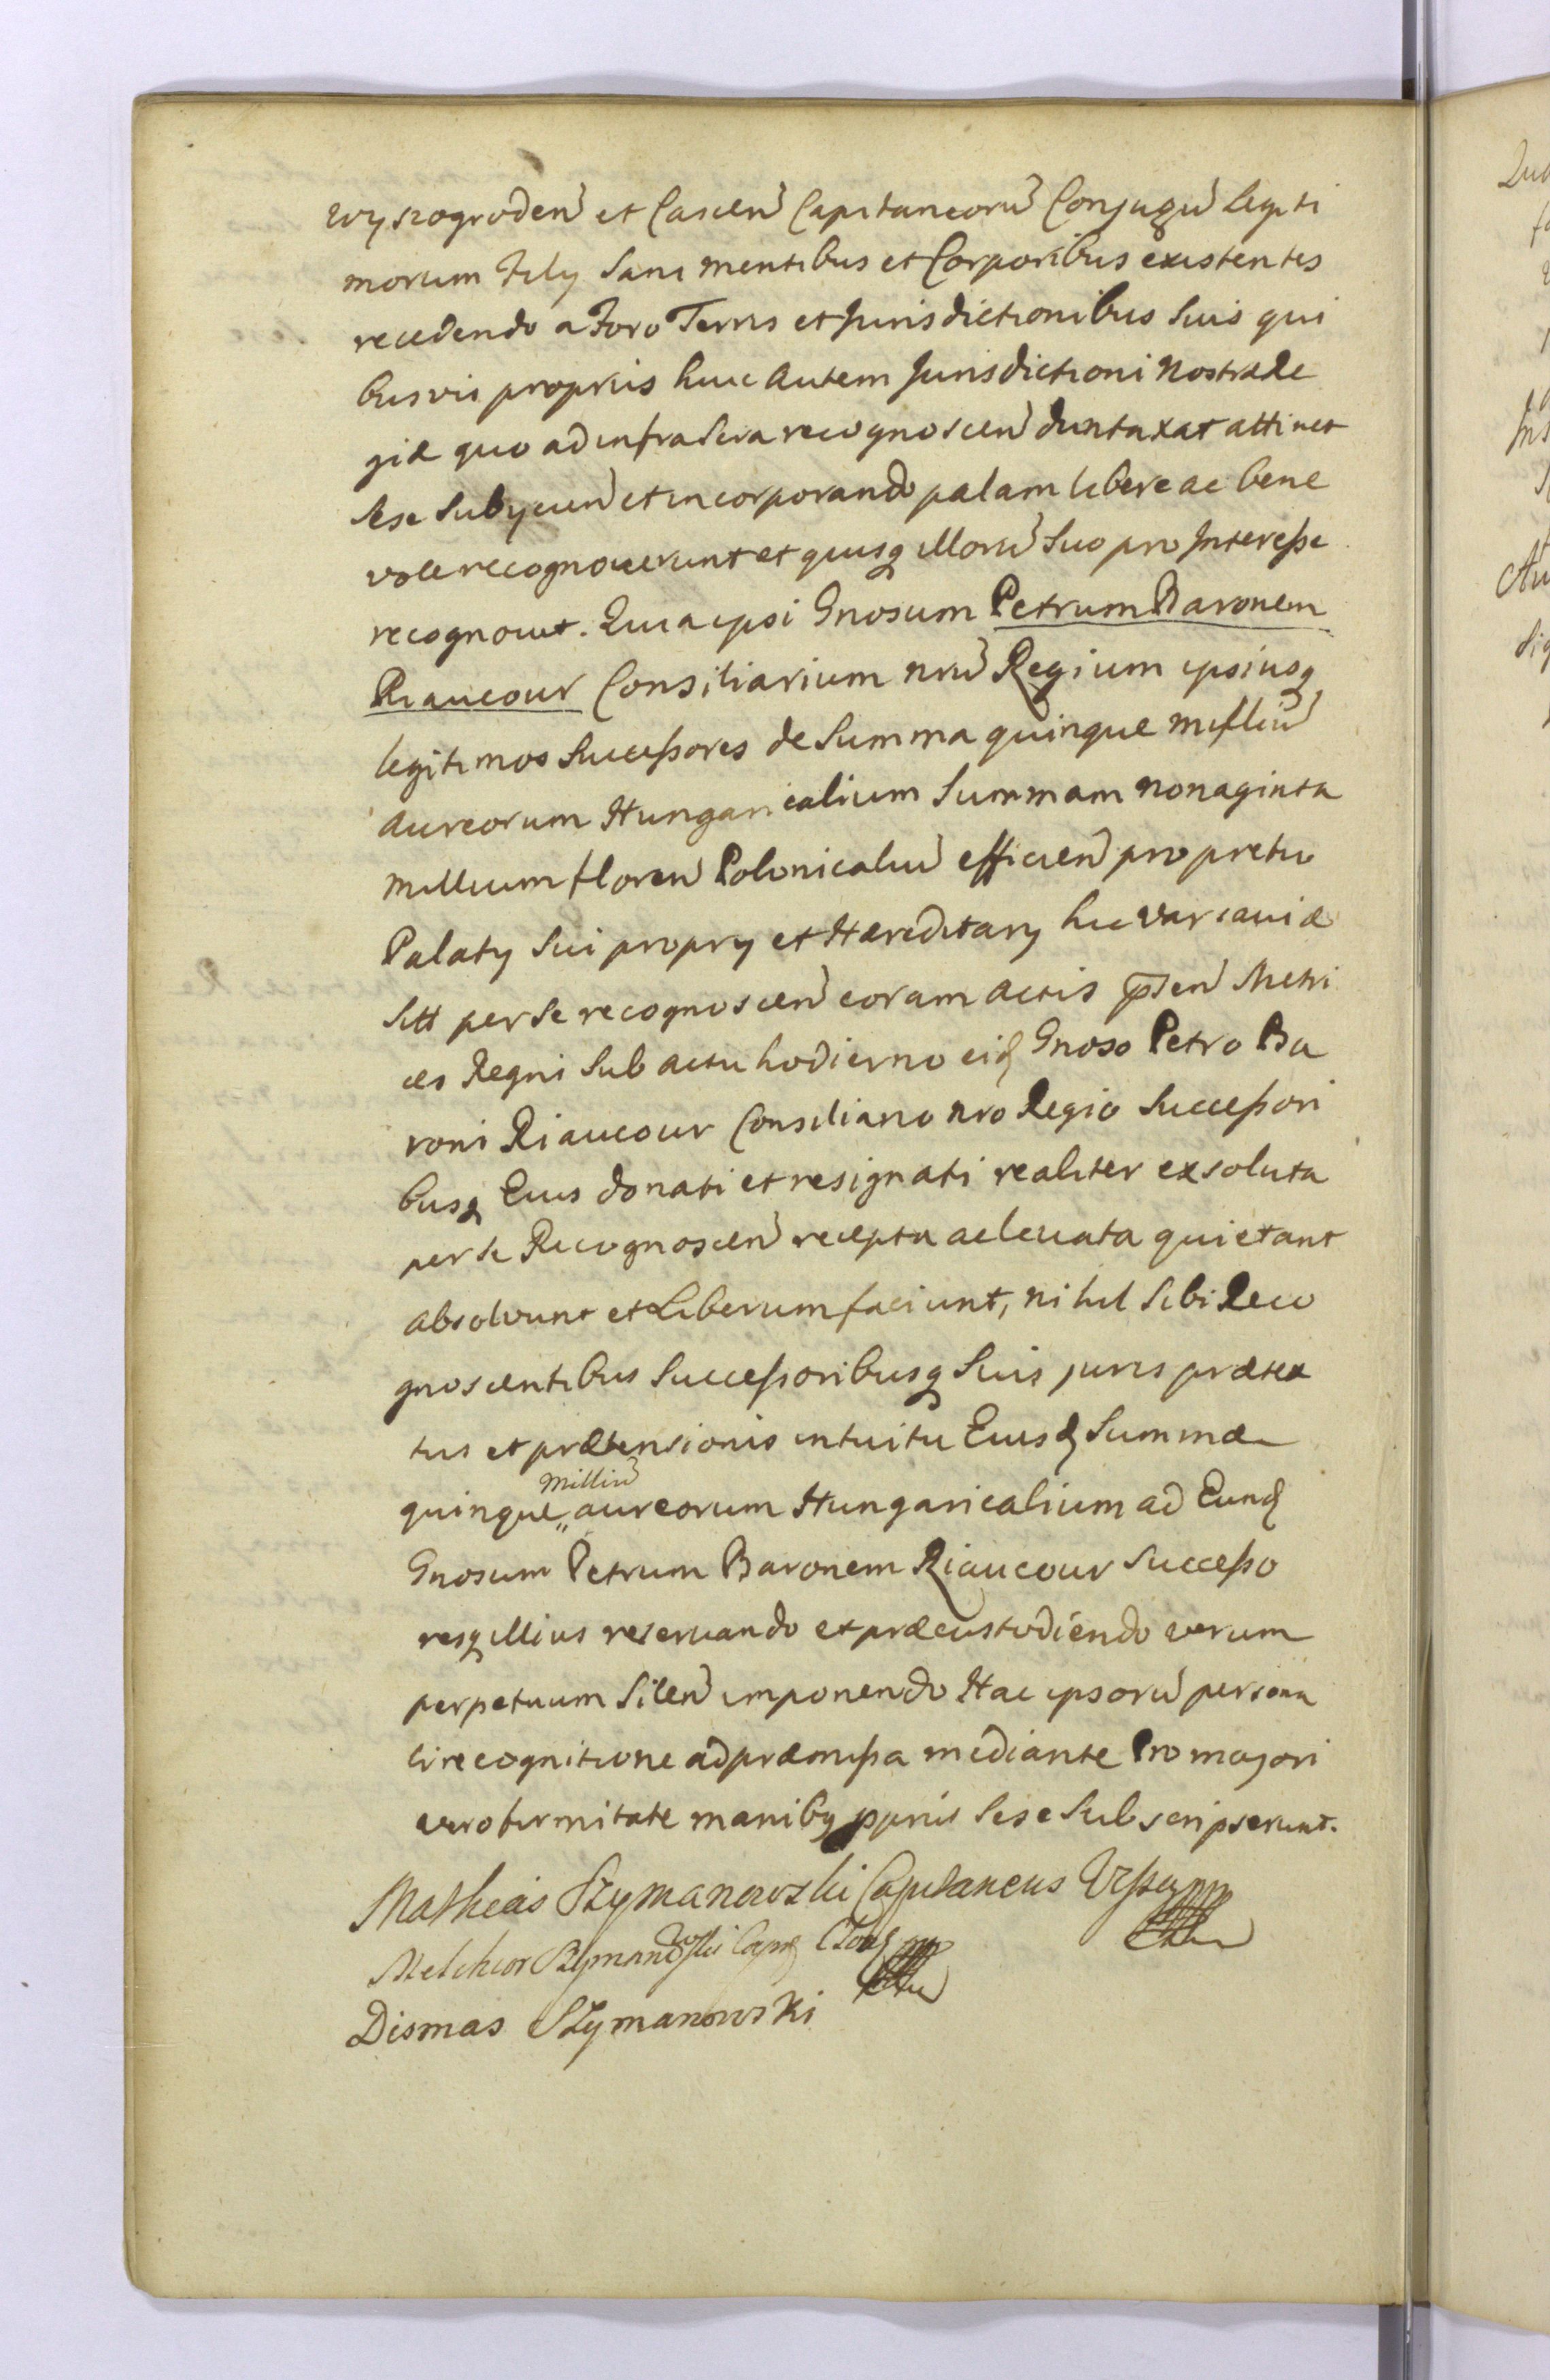 Wyszogroden et Cascen Capitaneoru Conjugu Legiti
morum Filÿ Sani mentibus et Corporibus existentes
recedendo a Foro Terris et Jurisdictionibus Suis qui
busvis propriis huic autem Jurisdictioni Nostræ Re
giæ quo ad infra Scra recognoscen duntaxat attinet
sese Subÿcien et incorporando palam libere ac bene
vole recognoverunt et quisq illoru Suo pro Interesse
recognovit. Quia ipsi Gnosum Petrum Baronem
Riaucour Consiliarium nrum Regium ipsiusq
legitimos Successores de Summa quinque milliu
aureorum Hungaricalium Summam nonaginta
millium floren Polonicaliu efficien pro pretio
Palatÿ Sui proprÿ et Hæreditarÿ hic Varsaviæ
Siti per se recognoscen coram actis pnten Metri
ces Regni Sub actu hodierno eid Gnoso Petro Ba
roni Riaucour Consiliario nro Regio Successori
busq Eius donati et resignati realiter exsoluta
per se Recognoscen recepta ac levata quietant
absolvunt et Liberum faciunt, nihil Sibi Reco
gnoscentibus Successoribusq Suis juris prætex
tus et prætensionis intuitu Eiusd Summæ
quinque „ milliu aureorum Hungaricalium ad Eund
Gnosum Petrum Baronem Riaucour Successo
resq illius reservando et præcustodiendo verum
perpetuum Silen imponendo Hac ipsoru persona
li recognitione ad præmissa mediante Pro majori
vero firmitate maniby pprys Sese Subscripserunt.
Matheus Szymanowski Capitaneus
Melchior Szymanowski Cap
Dismas Szymanowski